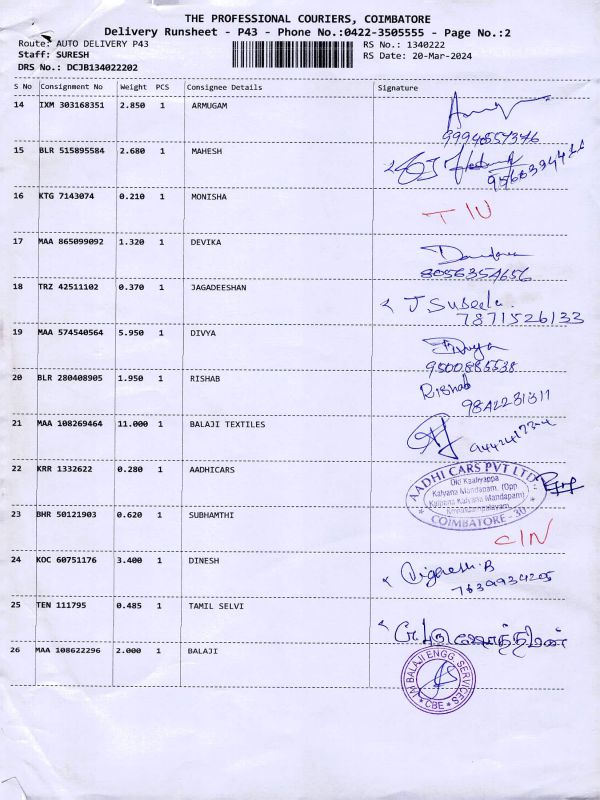 THE PROFESSIONAL COURIERS, COIMBATORE
Delivery Runsheet - P43 - Phone No.:0422-3505555 - Page No.:2
Route: AUTO DELIVERY P43 RS No.: 1340222
Staff: SURESH RS Date: 20-Mar-2024
DRS No.: DCJB134022202
S No Consignment No Weight PCS Consignee Details Signature
14 IXM 303168351 2.850 1 ARMUGAM
15 BLR 515895584 2.680 1 MAHESH
16 KTG 7143074 0.210 1 MONISHA
17 MAA 865099092 1.320 1 DEVIKA
8056354656
18 TRZ 42511102 0.370 1 JAGADEESHAN J Suseela.
7871526133
19 MAA 574540564 5.950 1 DIVYA Divya
9500885538
20 BLR 280408905 1.950 1 RISHAB Rishab
9842231311
21 MAA 108269464 11.000 1 BALAJI TEXTILES
22 KRR 1332622 0.280 1 AADHICARS AADHI CARS PVT LTD
Kalyana Mandapam, (Opp
Kalyana Mandapam)
COIMBATORE - 30
23 BHR 50121903 0.620 1 SUBHAMTHI CIN
24 KOC 60751176 3.400 1 DINESH
7639934205
25 TEN 111795 0.485 1 TAMIL SELVI
26 MAA 108622296 2.000 1 BALAJI BALAJI ENGG. SERVICES
CBE